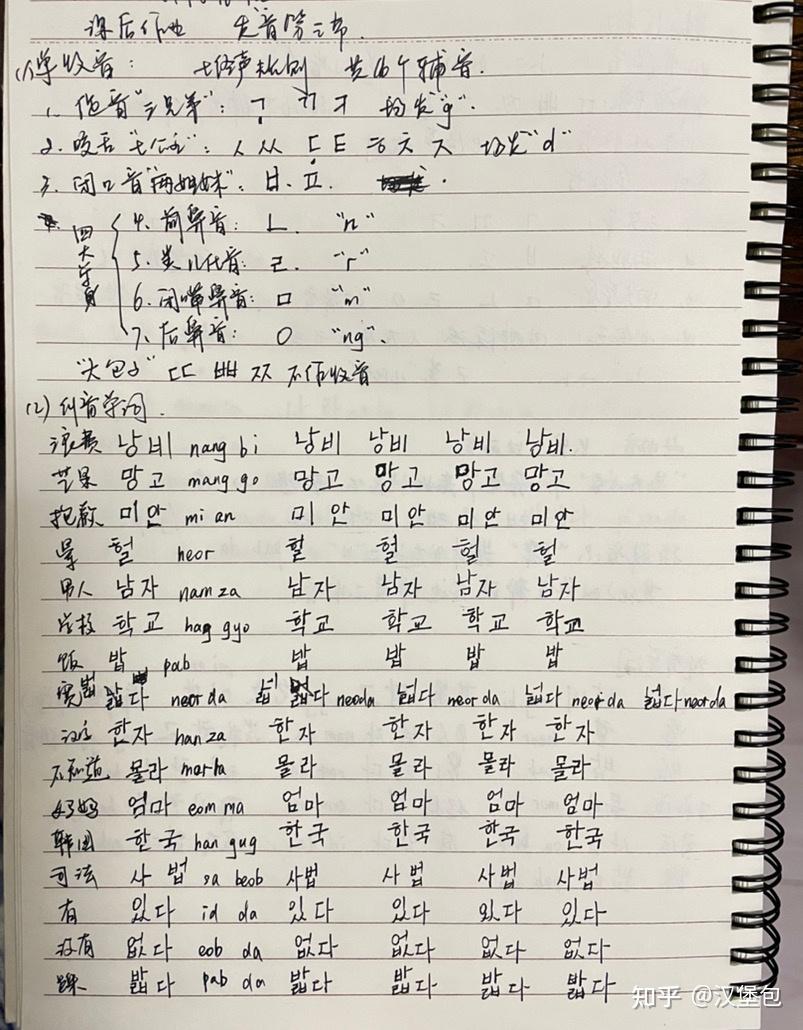 课后作业 发音第三节.
(1) 单收音: 七终声规则 共16个辅音.
1. 低音“三兄弟”: ㄱ ㄲ ㅋ 均发“g”.
2. 咬舌“七公主”: ㅅ ㅆ ㄷ ㅌ ㅎ ㅊ ㅈ 均发“d”
3. 闭口音“两姐妹”: ㅂ. ㅍ.
四大守员
4. 前鼻音: ㄴ. “n”
5. 类儿化音: ㄹ. “r”
6. 闭嘴鼻音: ㅁ “m”
7. 后鼻音: ㅇ “ng”.
“大包子” ㄸ ㅃ ㅉ 不作收音
(2) 纠音单词.
浪费 낭비 nang bi 낭비 낭비 낭비 낭비.
芒果 망고 mang go 망고 망고 망고 망고
抱歉 미안 mi an 미안 미안 미안 미안
晕 헐 heor 헐 헐 헐 헐
男人 남자 nam za 남자 남자 남자 남자
学校 학교 hag gyo 학교 학교 학교 학교
饭 밥 pab 밥 밥 밥 밥
宽 넓다 neor da 넓다 neoda 넓다 neor da 넓다 neor da 넓다 neor da
汉字 한자 han za 한자 한자 한자 한자
不知道 몰라 mor la 몰라 몰라 몰라 몰라
妈妈 엄마 eom ma 엄마 엄마 엄마 엄마
韩国 한국 han gug 한국 한국 한국 한국
司法 사법 sa beob 사법 사법 사법 사법
有 있다 id da 있다 있다 있다 있다
没有 없다 eob da 없다 없다 없다 없다
踩 밟다 pab da 밟다 밟다 밟다 밟다
知乎 @汉堡包